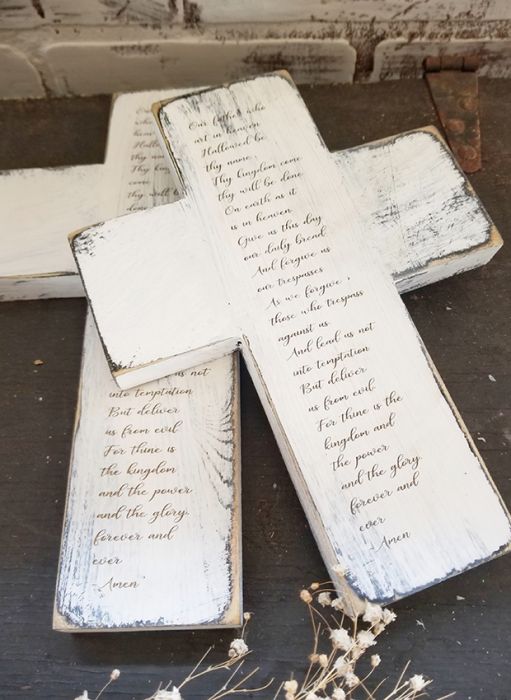 Our father who
art in heaven
Hallowed be
thy name.
Thy kingdom come
thy will be done
On earth as it
is in heaven.
Give us this day
our daily bread
And forgive us
our trespasses
As we forgive
those who trespass
against us
And lead us not
into temptation
But deliver
us from evil
For thine is the
kingdom and
the power
and the glory,
forever and
ever
-Amen
come
thy will b
done
us not
into temptation
But deliver
us from evil
For thine is
the kingdom
and the power
and the glory,
forever and
ever
-Amen